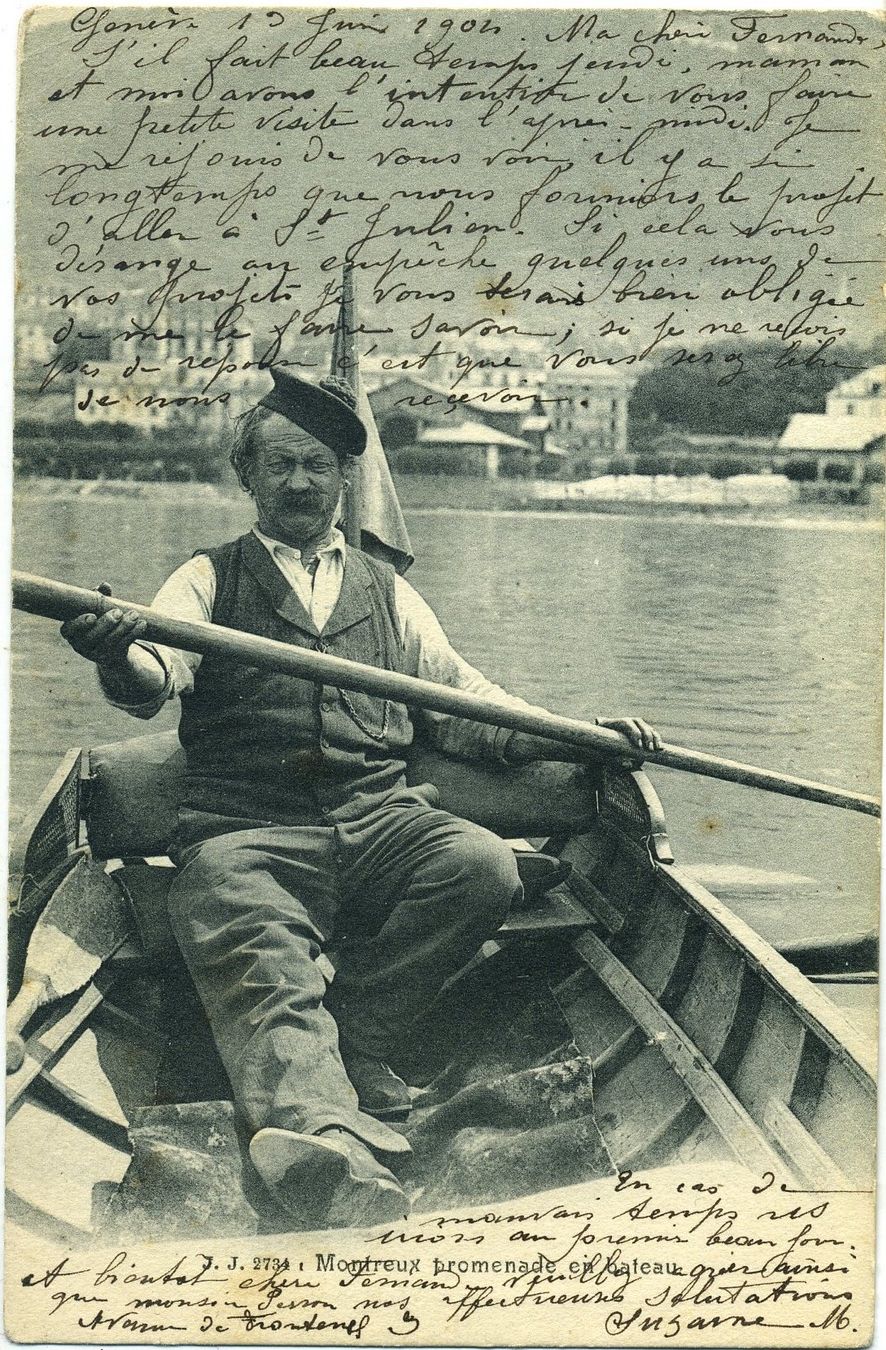 Genève 13 Juin 1904. Ma chère Fernande,
S'il fait beau temps jeudi, maman
et moi avons l'intention de vous faire
une petite visite dans l'après-midi. Je
me réjouis de vous voir, il y a si
longtemps que nous formions le projet
d'aller à St Julien. Si cela vous
dérange ou empêche quelques uns de
vos projets je vous serais bien obligée
de me le faire savoir; si je ne reçois
pas de réponse c'est que vous serez libre
de nous recevoir.
En cas de
mauvais temps nous
irons au premier beau jour.
J. J. 2734. Montreux promenade en bateau
et bientôt chère Fernande, veuillez agréer ainsi
que monsieur nos affectueuses salutations
Avenue de Frontenex 3 Suzanne M.